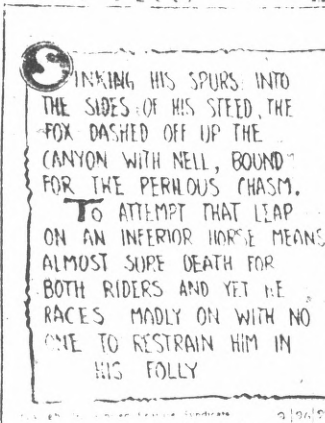 SINKING HIS SPURS INTO
THE SIDES OF HIS STEED, THE
FOX DASHED OFF UP THE
CANYON WITH NELL, BOUND
FOR THE PERILOUS CHASM.
TO ATTEMPT THAT LEAP
ON AN INFERIOR HORSE MEANS
ALMOST SURE DEATH FOR
BOTH RIDERS AND YET HE
RACES MADLY ON WITH NO
ONE TO RESTRAIN HIM IN
HIS FOLLY
Syndicate